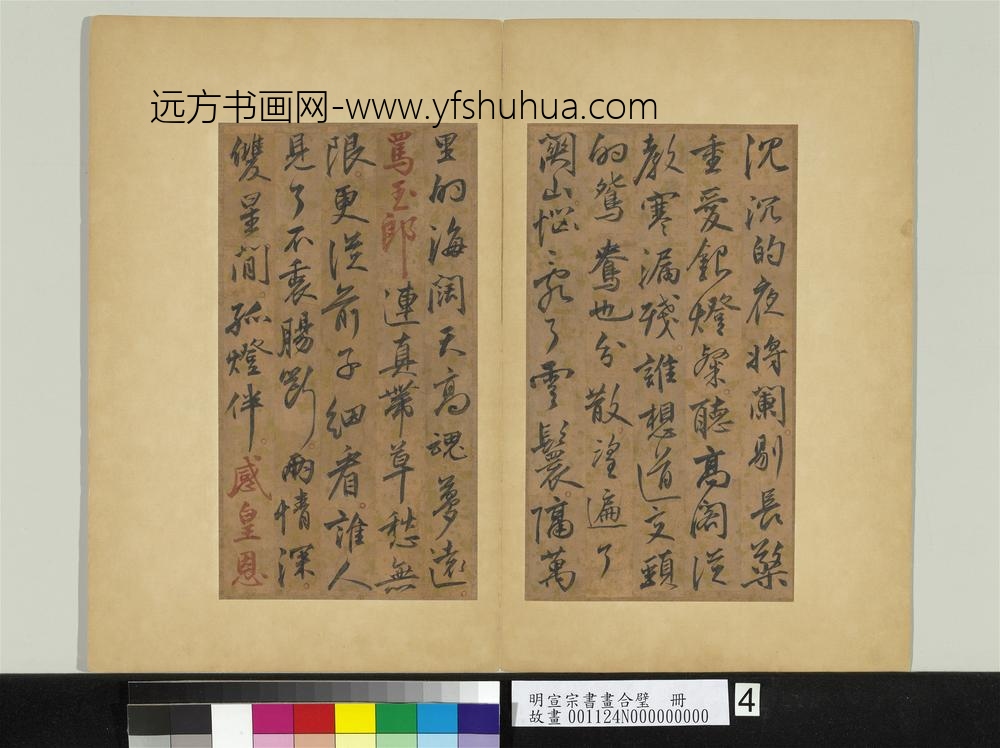 远方书画网-www.yfshuhua.com
沈沉的夜將闌剔長檠
重愛銀燈粲聽高閣從
教寒漏殘誰想道交頸
的鴛鴦也分散望遍了
關山惱亂了雲鬟隔萬
里的海闊天高魂夢遠
罵玉郎連真帶草愁無
限更從前子細看誰人
見了不腸斷兩情深
雙星間孤燈伴感皇恩
明宣宗書畫合璧 冊
故畫001124N000000000
4